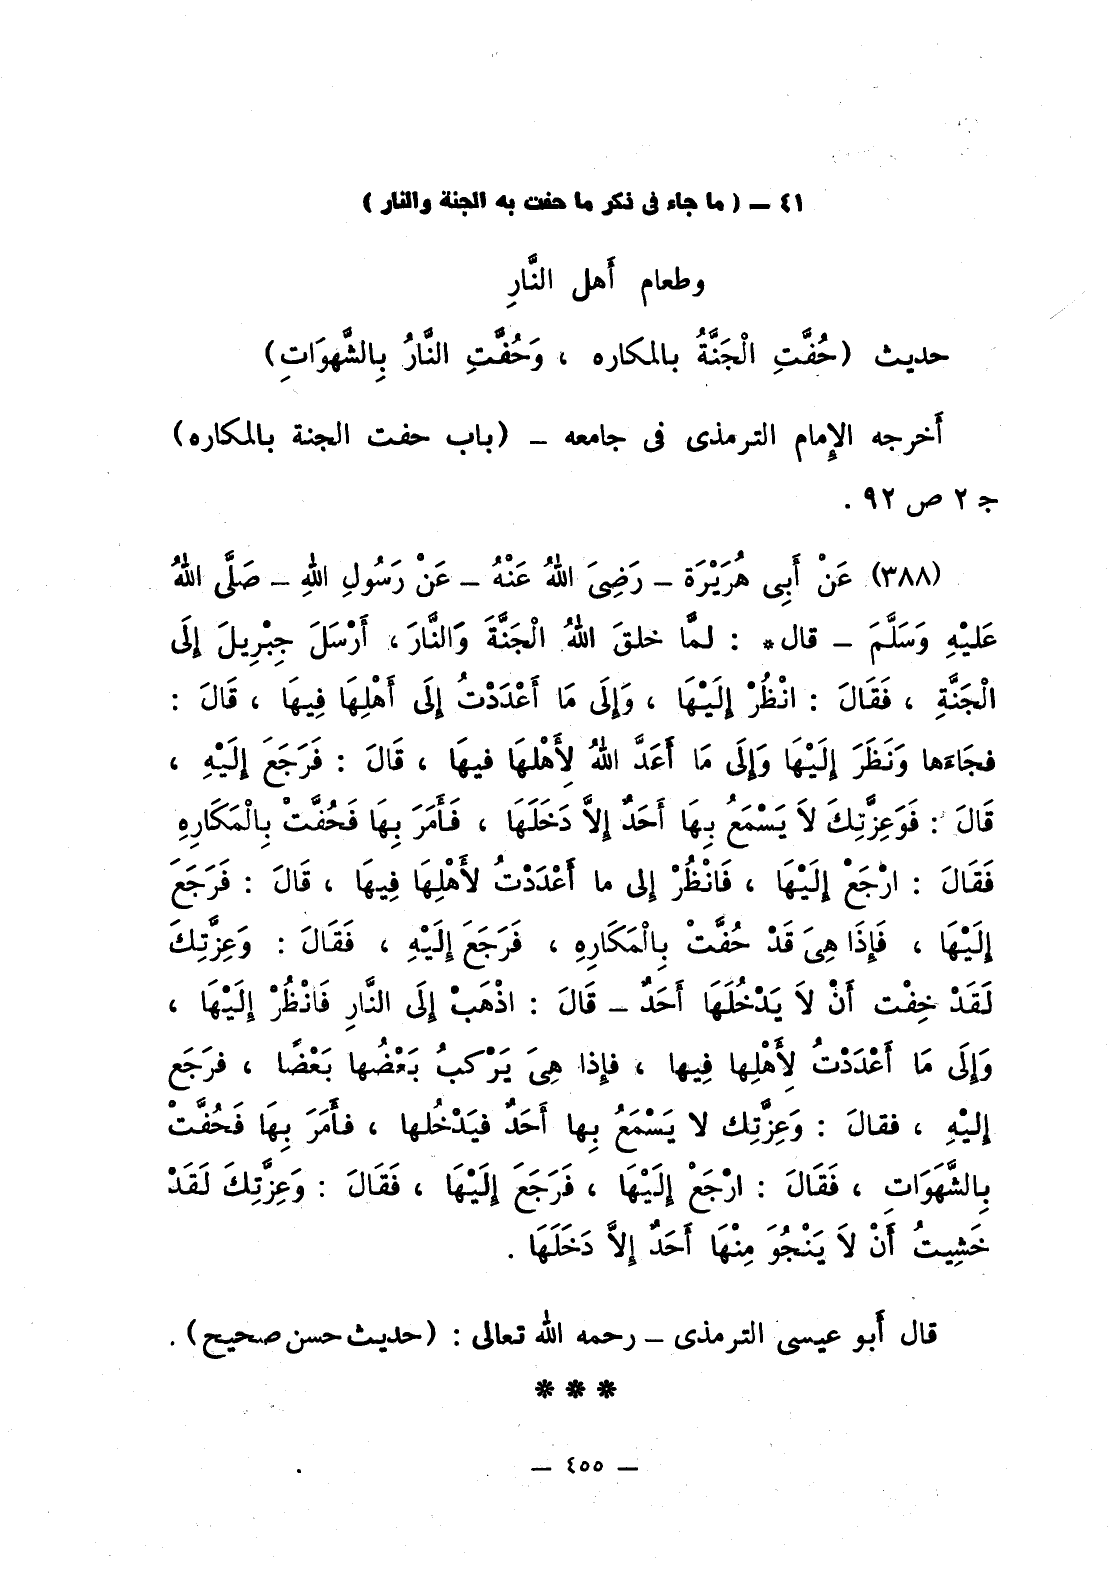 ٤١ – ( ما جاء فى ذكر ما حفت به الجنة والنار )
وطعام أَهل النَّارِ
حديث (حُفَّتِ الْجَنَّةُ بالمكاره ، وَحُفَّتِ النَّارُ بِالشَّهوَاتِ)
أَخرجه الإِمام الترمذى فى جامعه – (باب حفت الجنة بالمكاره)
جـ ٢ ص ٩٢ .
(٣٨٨) عَنْ أَبِى هُرَيْرَة – رَضِىَ اللهُ عَنْهُ – عَنْ رَسُولِ اللهِ – صَلَّى اللهُ
عَليْهِ وَسَلَّمَ – قال* : لمَّا خلقَ اللهُ الْجَنَّةَ وَالنَّارَ ، أَرْسَلَ جِبْرِيلَ إِلَى
الْجَنَّةِ ، فَقَالَ : انْظُرْ إِلَيْهَا ، وَإِلَى مَا أَعْدَدْتُ إِلَى أَهْلِهَا فِيهَا ، قَالَ :
فجَاءَها وَنَظَرَ إِلَيْهَا وَإِلَى مَا أَعَدَّ اللهُ لِأَهْلهَا فيهَا ، قَالَ : فَرَجَعَ إِلَيْهِ ،
قَالَ : فَوَعِزَّتِكَ لاَ يَسْمَعُ بِهَا أَحَدٌ إِلاَّ دَخَلَهَا ، فَأَمَرَ بِهَا فَحُفَّتْ بِالْمَكَارِهِ
فَقَالَ : ارْجَعْ إِلَيْهَا ، فَانْظُرْ إِلى ما أَعْدَدْتُ لأَهْلِهَا فِيهَا ، قَالَ : فَرَجَعَ
إِلَيْهَا ، فَإِذَا هِىَ قَدْ حُفَّتْ بِالْمَكَارِهِ ، فَرَجَعَ إِلَيْهِ ، فَقَالَ : وَعِزَّتِكَ
لَقَدْ خِفْت أَنْ لاَ يَدْخُلَهَا أَحَدٌ – قَالَ : اذْهَبْ إِلَى النَّارِ فَانْظُرْ إِلَيْهَا ،
وَإِلَى مَا أَعْدَدْتُ لِأَهْلِها فِيها ، فإِذا هِىَ يَرْكبُ بَعْضُها بَعْضًا ، فرَجَع
إِليْهِ ، فقالَ : وَعِزَّتِك لا يَسْمَعُ بِها أَحَدٌ فيَدْخُلها ، فأَمَرَ بِهَا فَحُفَّتْ
بِالشَّهَوَاتِ ، فَقَالَ : ارْجَعْ إِلَيْهَا ، فَرَجَعَ إِلَيْهَا ، فَقَالَ : وَعِزَّتِكَ لَقَدْ
خَشِيتُ أَنْ لاَ يَنْجُوَ مِنْهَا أَحَدٌ إِلاَّ دَخَلَهَا .
قال أَبو عيسى الترمذى – رحمه الله تعالى : (حديث حسن صحيح) .
* * *
– ٤٥٥ –